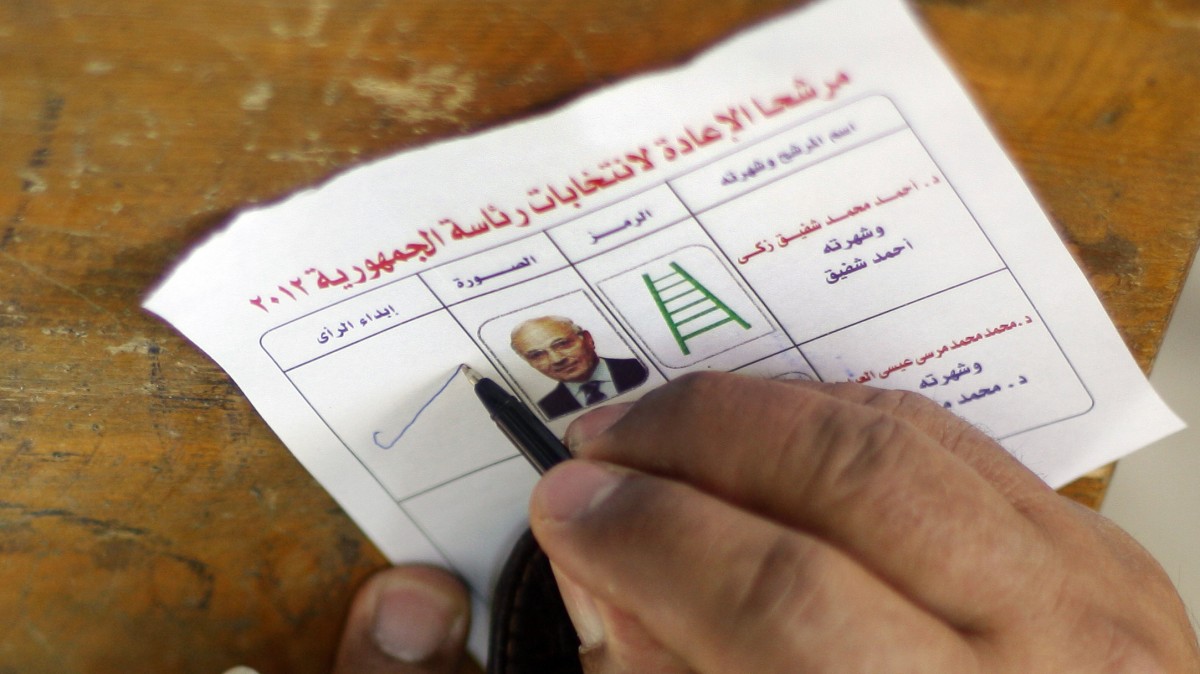 مرشحا الإعادة لانتخابات رئاسة الجمهورية ٢٠١٢
اسم المرشح وشهرته
الرمز
الصورة
إبداء الرأى
د. أحمد محمد شفيق زكى
وشهرته
أحمد شفيق
د. محمد محمد مرسى عيسى
وشهرته
د. محمد